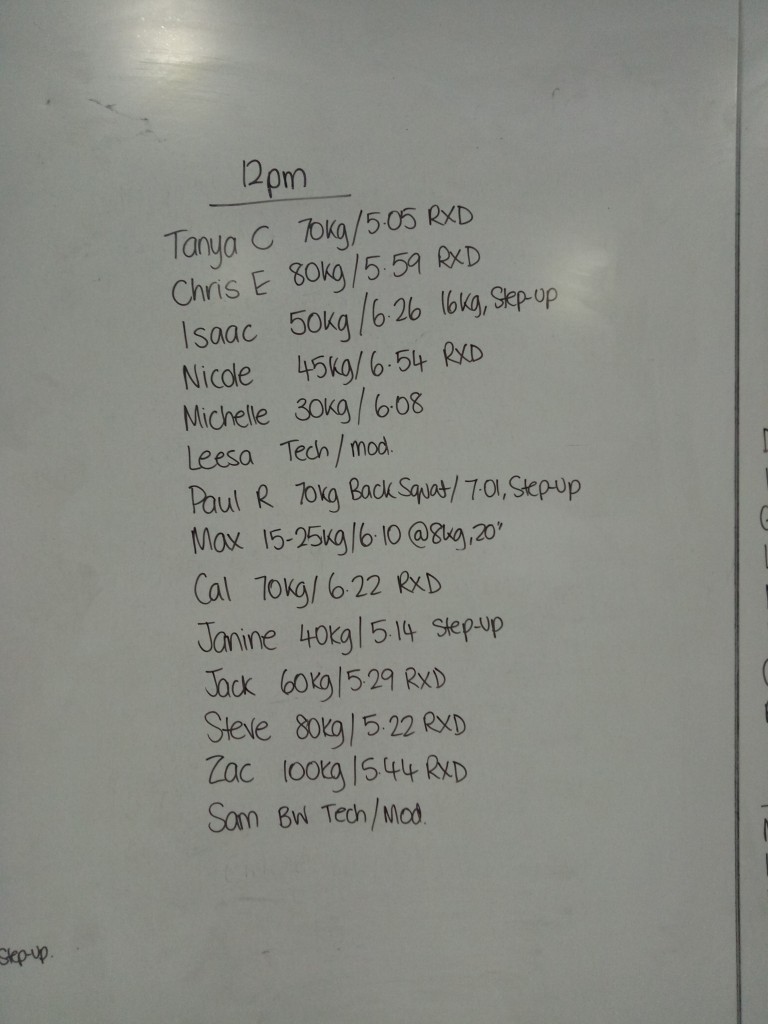 12pm
Tanya C 70kg/5.05 RXD
Chris E 80kg/5.59 RXD
Isaac 50kg/6.26 16kg, Step-up
Nicole 45kg/6.54 RXD
Michelle 30kg/6.08
Leesa Tech/mod.
Paul R 70kg Back Squat/7.01, Step-up
Max 15-25kg/6.10 @8kg,20"
Cal 70kg/6.22 RXD
Janine 40kg/5.14 Step-up
Jack 60kg/5.29 RXD
Steve 80kg/5.22 RXD
Zac 100kg/5.44 RXD
Sam BW Tech/Mod.
Step-up.